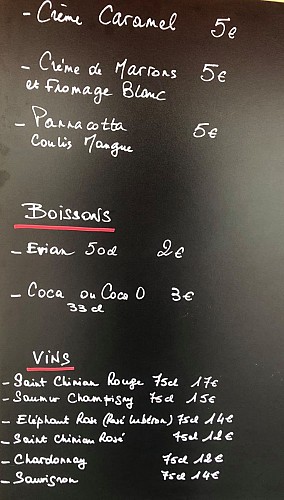 - Crème Caramel 5€
- Crème de Marrons 5€
et Fromage Blanc
- Pannacotta 5€
Coulis Mangue
BOISSONS
- Evian 50cl 2€
- Coca ou Coca 0 3€
33cl
VINS
- Saint Chinian Rouge 75cl 17€
- Saumur Champigny 75cl 15€
- Eléphant Rose (Rosé Lubéron) 75cl 14€
- Saint Chinian Rosé 75cl 12€
- Chardonnay 75cl 12€
- Sauvignon 75cl 14€